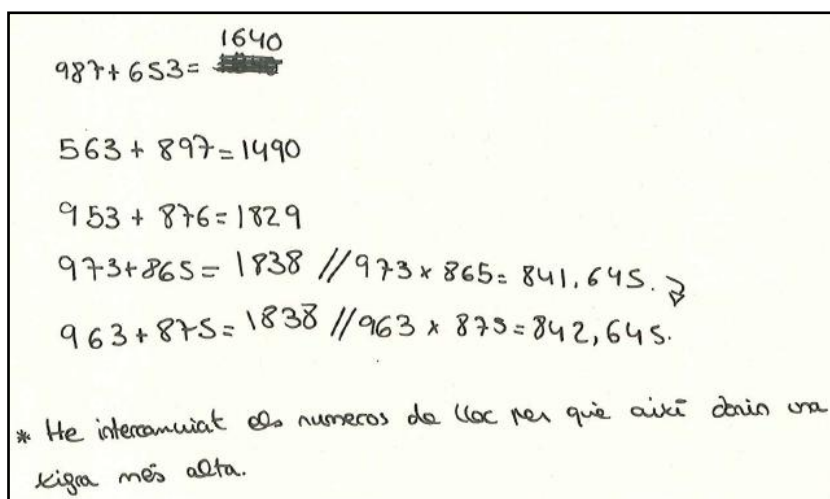 1640
987+653=
563 + 897=1490
953 + 876=1829
973+865= 1838 // 973 x 865= 841,645.
963+875= 1838 // 963 x 875=842,645.
* He intercanviat els numeros de lloc per què aixi donin una
xigra més alta.